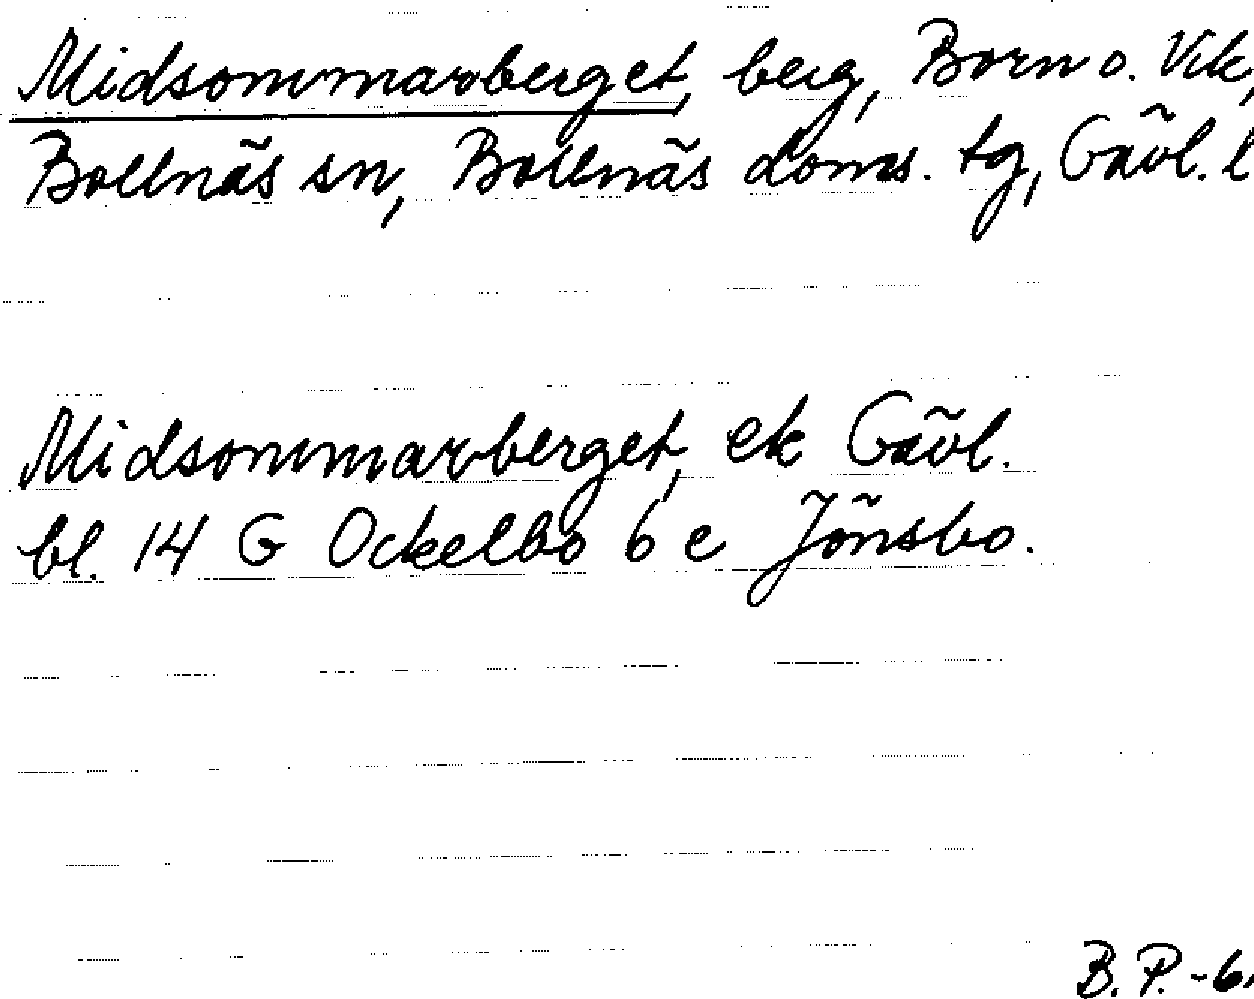 Midsommarberget, berg, Born o. Vik,
Bollnäs sn, Bollnäs doms. tg, Gävl. l
Midsommarberget, ek Gävl.
bl. 14 G Ockelbo 6 e Jönsbo.
B. P. - 6